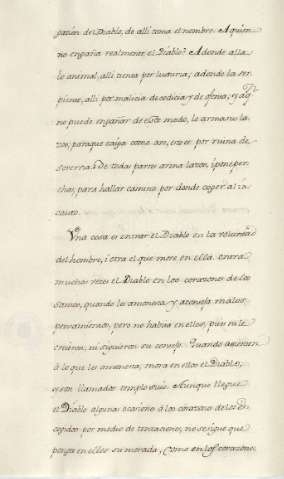 pación del Diablo, de alli toma el nombre. A quien
no engaña realmente, el Diablo? Adonde alla
lo animal, alli tienta por luxuria; adonde la
alli por malicia de codicia y de
no puede engañar de este modo, le arma su la-
zos, para que caiga como
De todas partes arma lazos, i pone per-
chas, para hallar camino por donde coger al in-
cauto.
Vna cosa es entrar el Diablo en la voluntad
del hombre, i otra el que more en ella. entra
muchas vezes el Diablo en los corazones de los
Santos, quando les amonesta y aconseja malos
pensamientos, pero no habita en ellos, pues ni le
ni siguieron su consejo. Quando
à lo que les amonesta, mora en ellos el Diablo,
y son llamados templo suio. Aunque llegue
el Diablo algunas à los corazones de los es-
cogidos por medio de tentaciones, no se sigue que
ponga en ellos su morada, como en los corazones